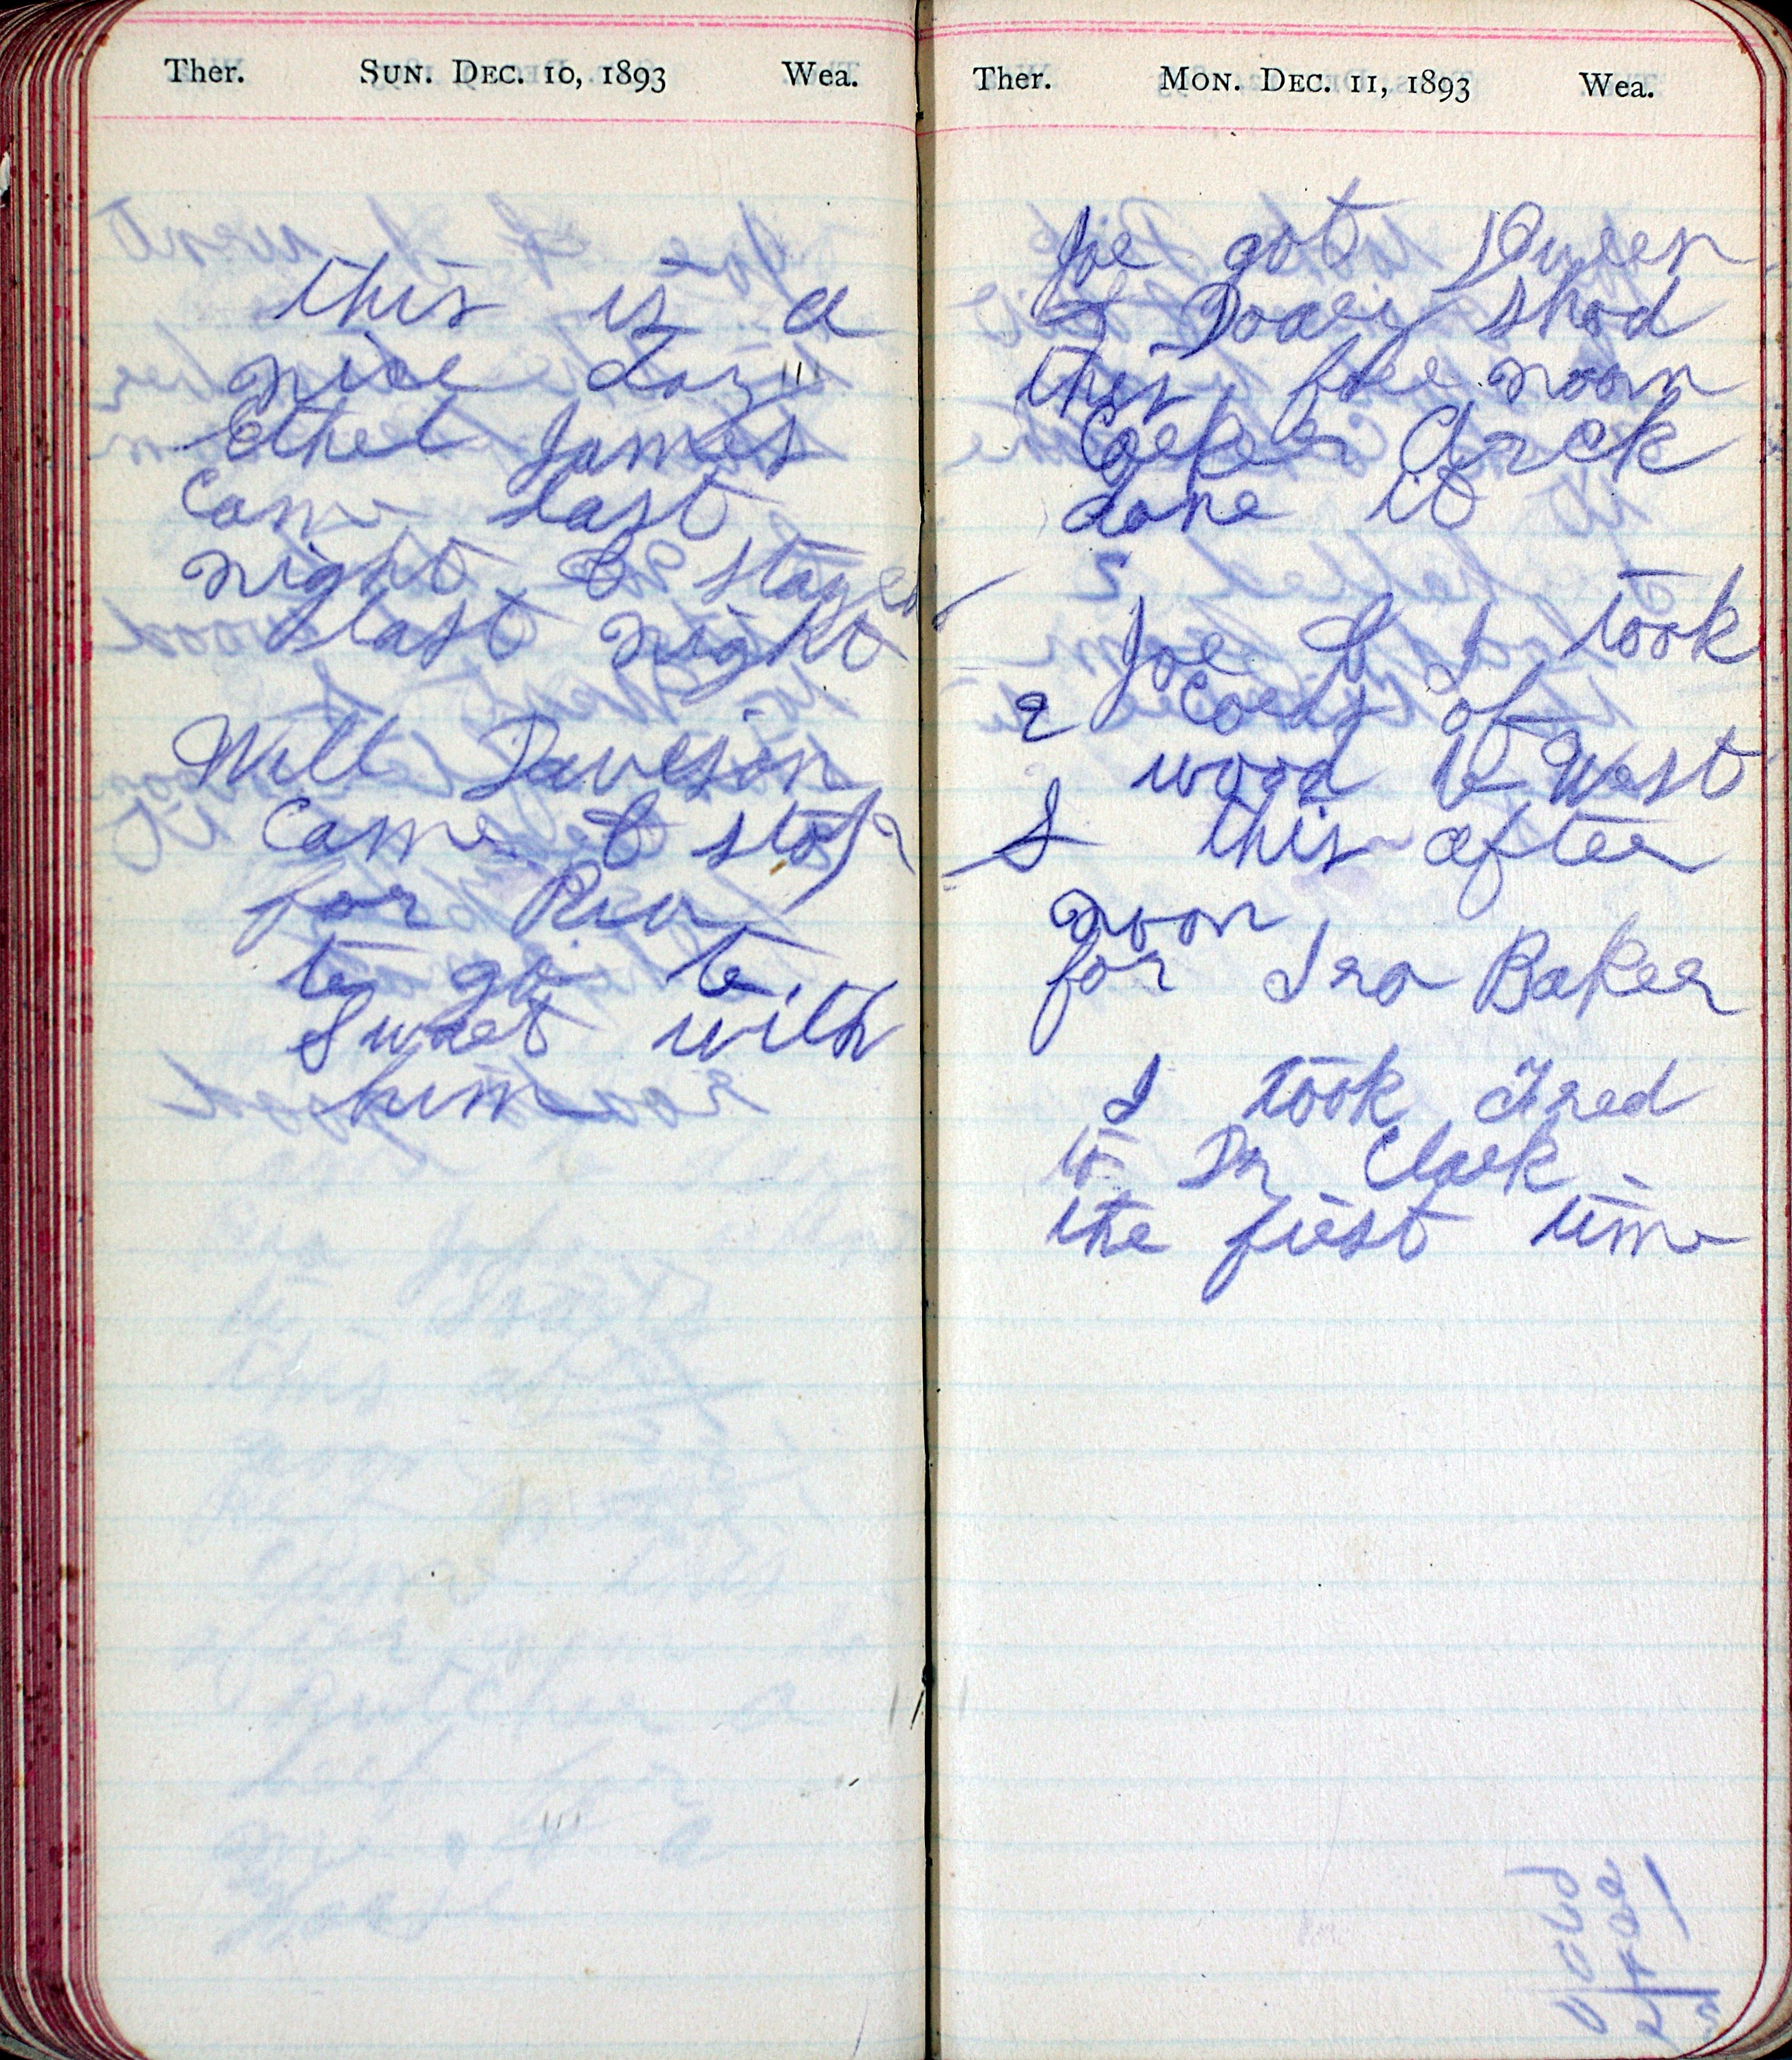 Ther. SUN. DEC. 10, 1893 Wea.
this is a
nice day
Ethel James
Came last
night & stayed
last night
Will Davison
Came & stop
for Rea
to go to
Sweet with
him
Ther. MON. DEC. 11, 1893 Wea.
Joe got Queen
& shod
this fore noon
done it
Joe & I took
2 Cords of
wood to West
S this after
noon
for Ira Baker
I took Fred
to Dr Clark
the first time